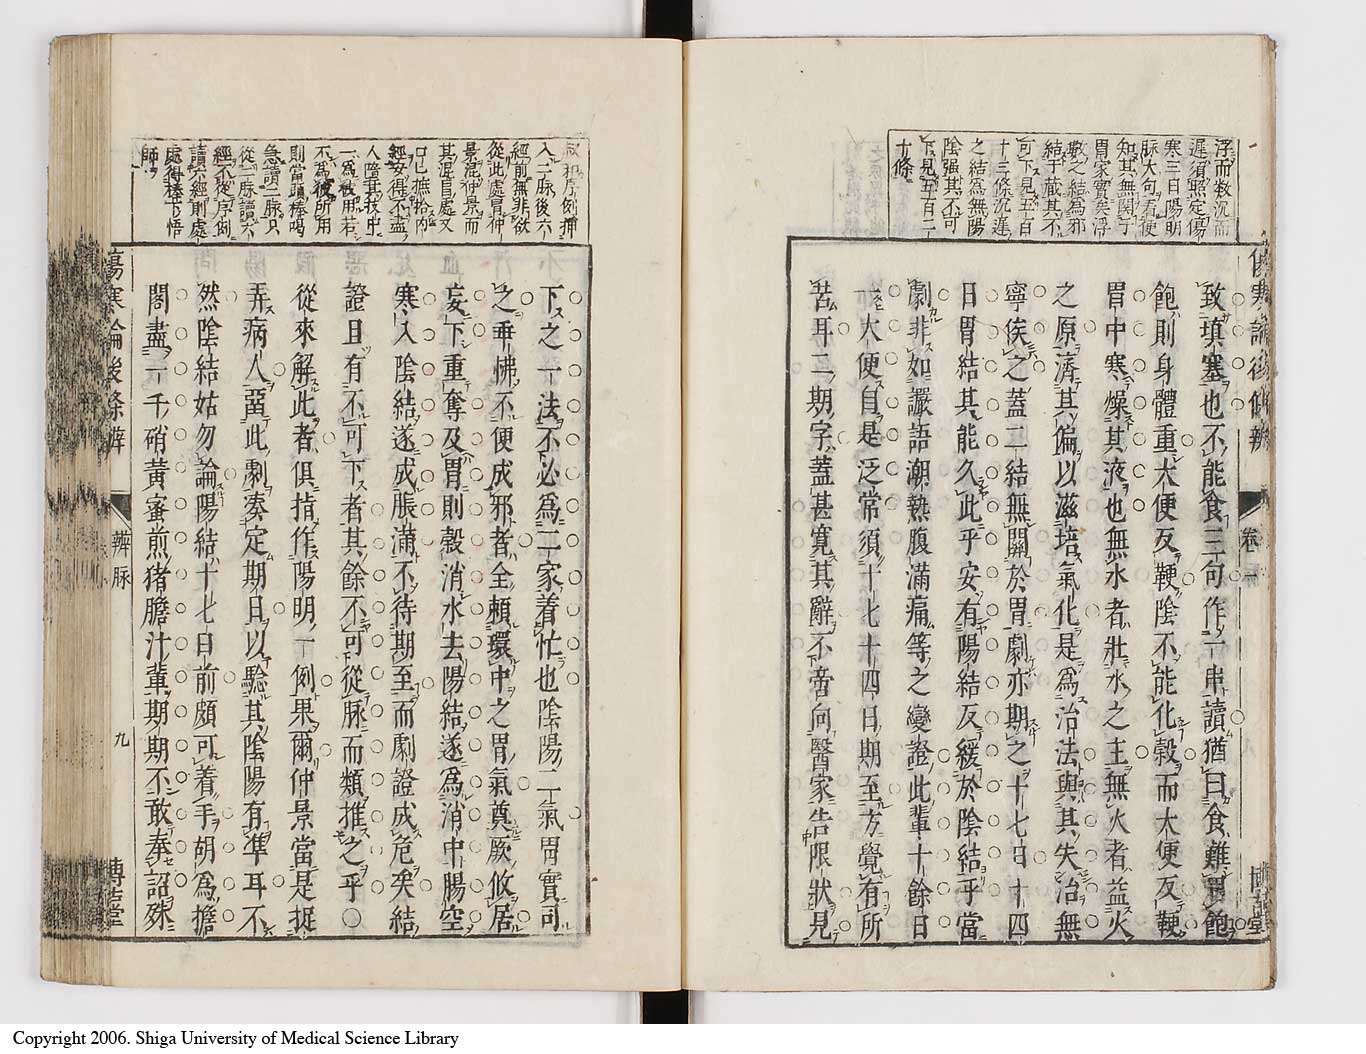 浮而數沉而
遲須照定傷
寒三日陽明
脉大句看便
知其無關于
胃家實矣浮
數之結為邪
結于藏其不
可下見五百
十三條沉遲
之結為無陽
陰强其不可
下見五百二
十條
傷寒論後條辨
卷一
博古堂
致填塞也不能食三句作一串讀猶曰食難胃飽
飽則身體重大便反鞕陰不能化穀而大便反鞕
胃中寒燥其液也無水者壯水之主無火者益火
之原濟其偏以滋培氣化是為治法與其失治無
寧俟之蓋二結無關於胃劇亦期之十七日十四
日胃結其能久此乎安有陽結反緩於陰結乎當
劇非如讝語潮熱腹滿痛等之變證此輩十餘日
一大便自是泛常須十七十四日期至方覺有所
苦耳二期字蓋甚寬其辭不啻向醫家告限狀見
叔和序例押
入二脉後六
經前無非欲
從此處冒仲
景混仲景而
其混冒處又
口口摭拾內
經安得不盡
人陰其技中
一為被用若
不為彼所用
則當頭棒喝
急讀二脉只
從二脉讀六
經不從序例
讀六經則處
處得棒下悟
師
下之一法不必為二家着忙也陰陽二氣胃實可
之垂怫不便成邪者全頼環中之胃氣奠厥攸居
妄下重奪及胃則穀消水去陽結遂為消中腸空
寒入陰結遂成脹滿不待期至而劇證成危矣結
證且有不可下者其餘不可從脉而類推之乎〇
從來解此者俱指作陽明一例果爾仲景當是捉
弄病人畱此劇湊定期日以驗其陰陽有準耳不
然陰結姑勿論陽結十七日前頗可着手胡為擔
閣盡一千硝黃蜜煎猪膽汁輩期期不敢奉詔殊
傷寒論後條辨
辨脉
九
博古堂
Copyright 2006. Shiga University of Medical Science Library